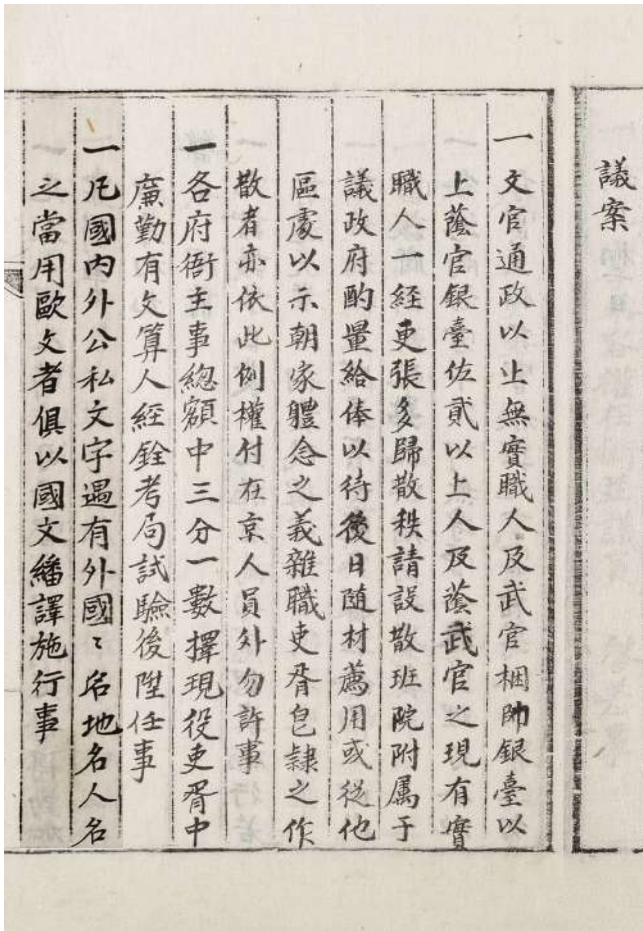 議案
一文官通政以上無實職人及武官梱帥銀臺以
上蔭官銀臺佐貳以上人及蔭武官之現有實
職人一経更張多歸散秩請設散班院附属于
議政府酌量給俸以待後日随材薦用或從他
區處以示朝家軆念之義雜職吏胥皂隷之作
散者亦依此例權付在京人員外勿許事
一各府衙主事總額中三分一數擇現役吏胥中
廉勤有文算人經銓考局試驗後陞任事
一凡國内外公私文字遇有外國〻名地名人名
之當用歐文者俱以國文繙譯施行事